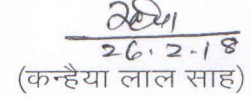 26.2.18
(कन्हैया लाल साह)